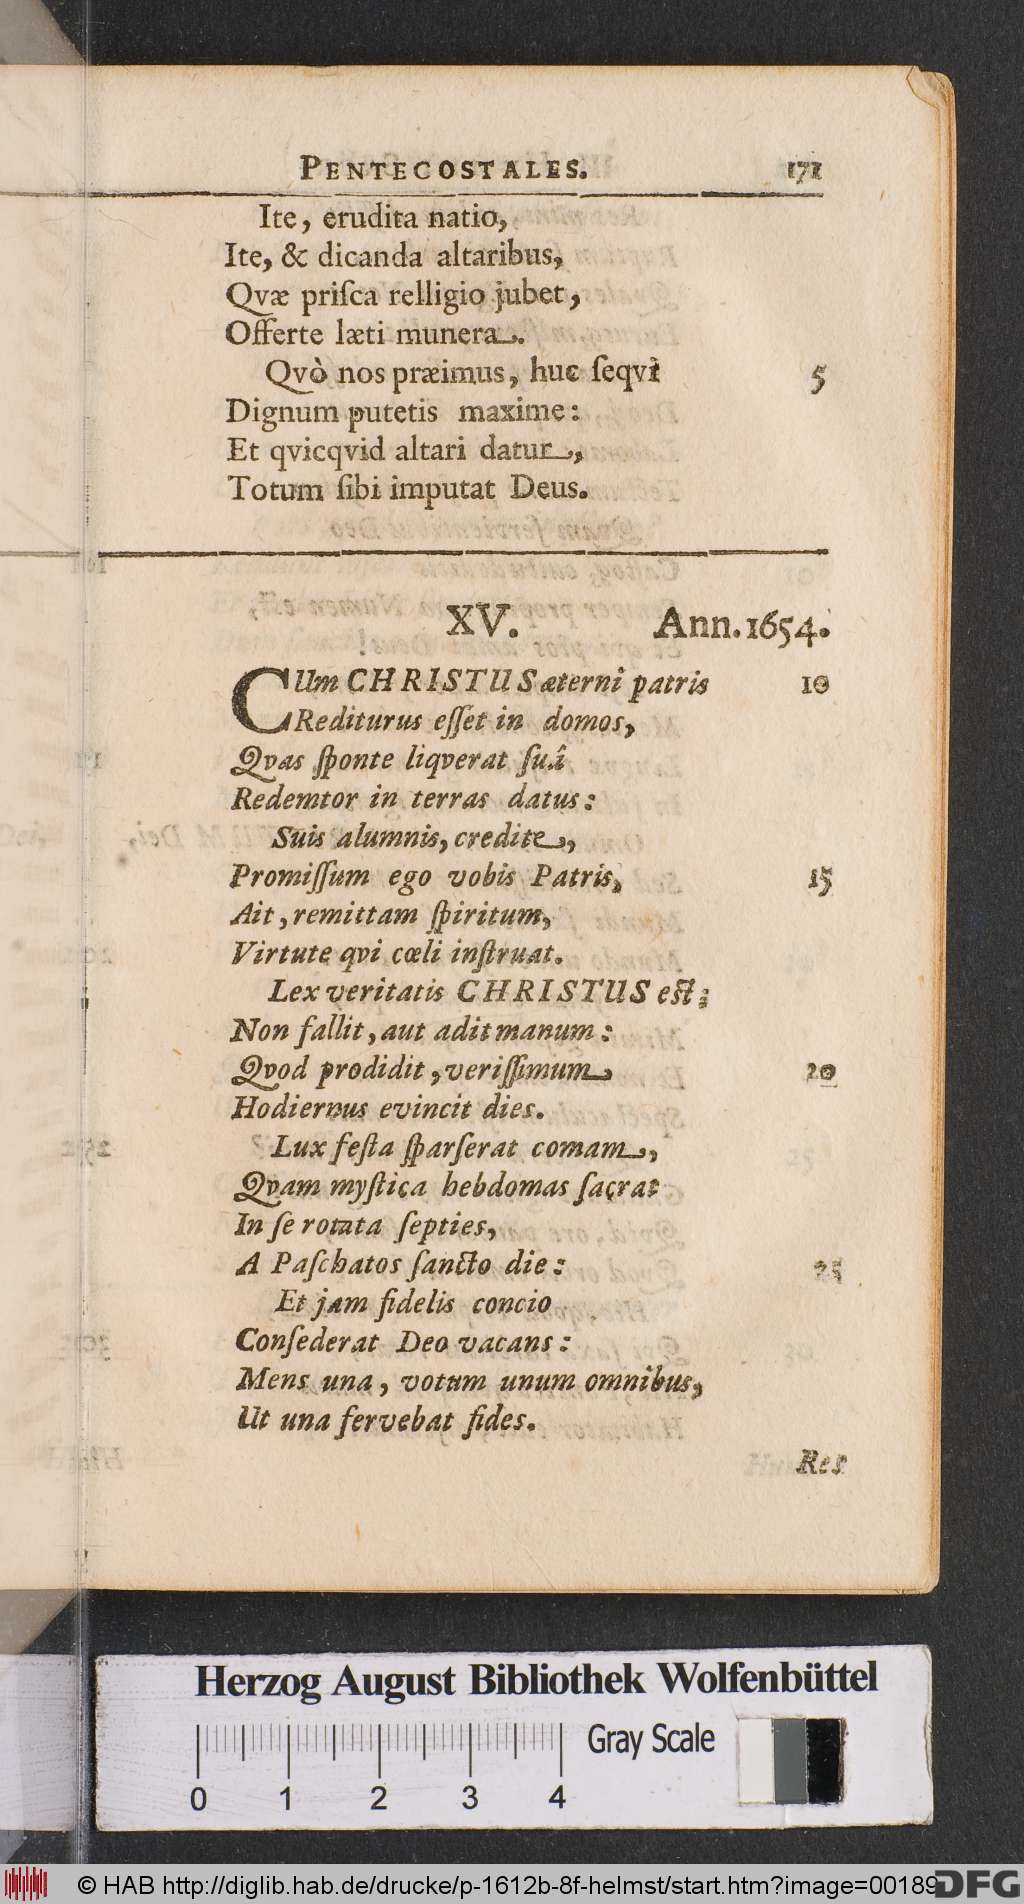 PENTECOSTALES. 171
Ite, erudita natio,
Ite, & dicanda altaribus,
Qvæ priſca relligio jubet,
Offerte læti munera.
Qvò nos præimus, huc ſeqvi 5
Dignum putetis maxime:
Et qvicqvid altari datur,
Totum ſibi imputat Deus.
XV. Ann. 1654.
CUm CHRISTUS æterni patris 10
Rediturus eſſet in domos,
Qvas ſponte liqverat ſuâ
Redemtor in terras datus:
Suis alumnis, credite,
Promiſſum ego vobis Patris, 15
Ait, remittam ſpiritum,
Virtute qvi cœli inſtruat.
Lex veritatis CHRISTUS eſt;
Non fallit, aut adit manum:
Qvod prodidit, veriſſimum 20
Hodiernus evincit dies.
Lux feſta ſparſerat comam,
Qvam myſtica hebdomas ſacrat
In ſe rotata ſepties,
A Paſchatos ſancto die: 25
Et jam fidelis concio
Conſederat Deo vacans:
Mens una, votum unum omnibus,
Ut una fervebat fides.
Res
Herzog August Bibliothek Wolfenbüttel
Gray Scale
0 1 2 3 4
© HAB http://diglib.hab.de/drucke/p-1612b-8f-helmst/start.htm?image=00189
DFG